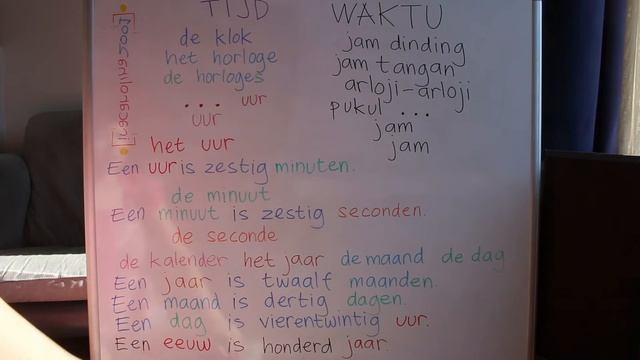 TIJD WAKTU
de klok jam dinding
het horloge jam tangan
de horloges arloji-arloji
... uur pukul ...
uur jam
het uur jam
Een uur is zestig minuten.
de minuut
Een minuut is zestig seconden.
de seconde
de kalender het jaar de maand de dag
Een jaar is twaalf maanden.
Een maand is dertig dagen.
Een dag is vierentwintig uur.
Een eeuw is honderd jaar.